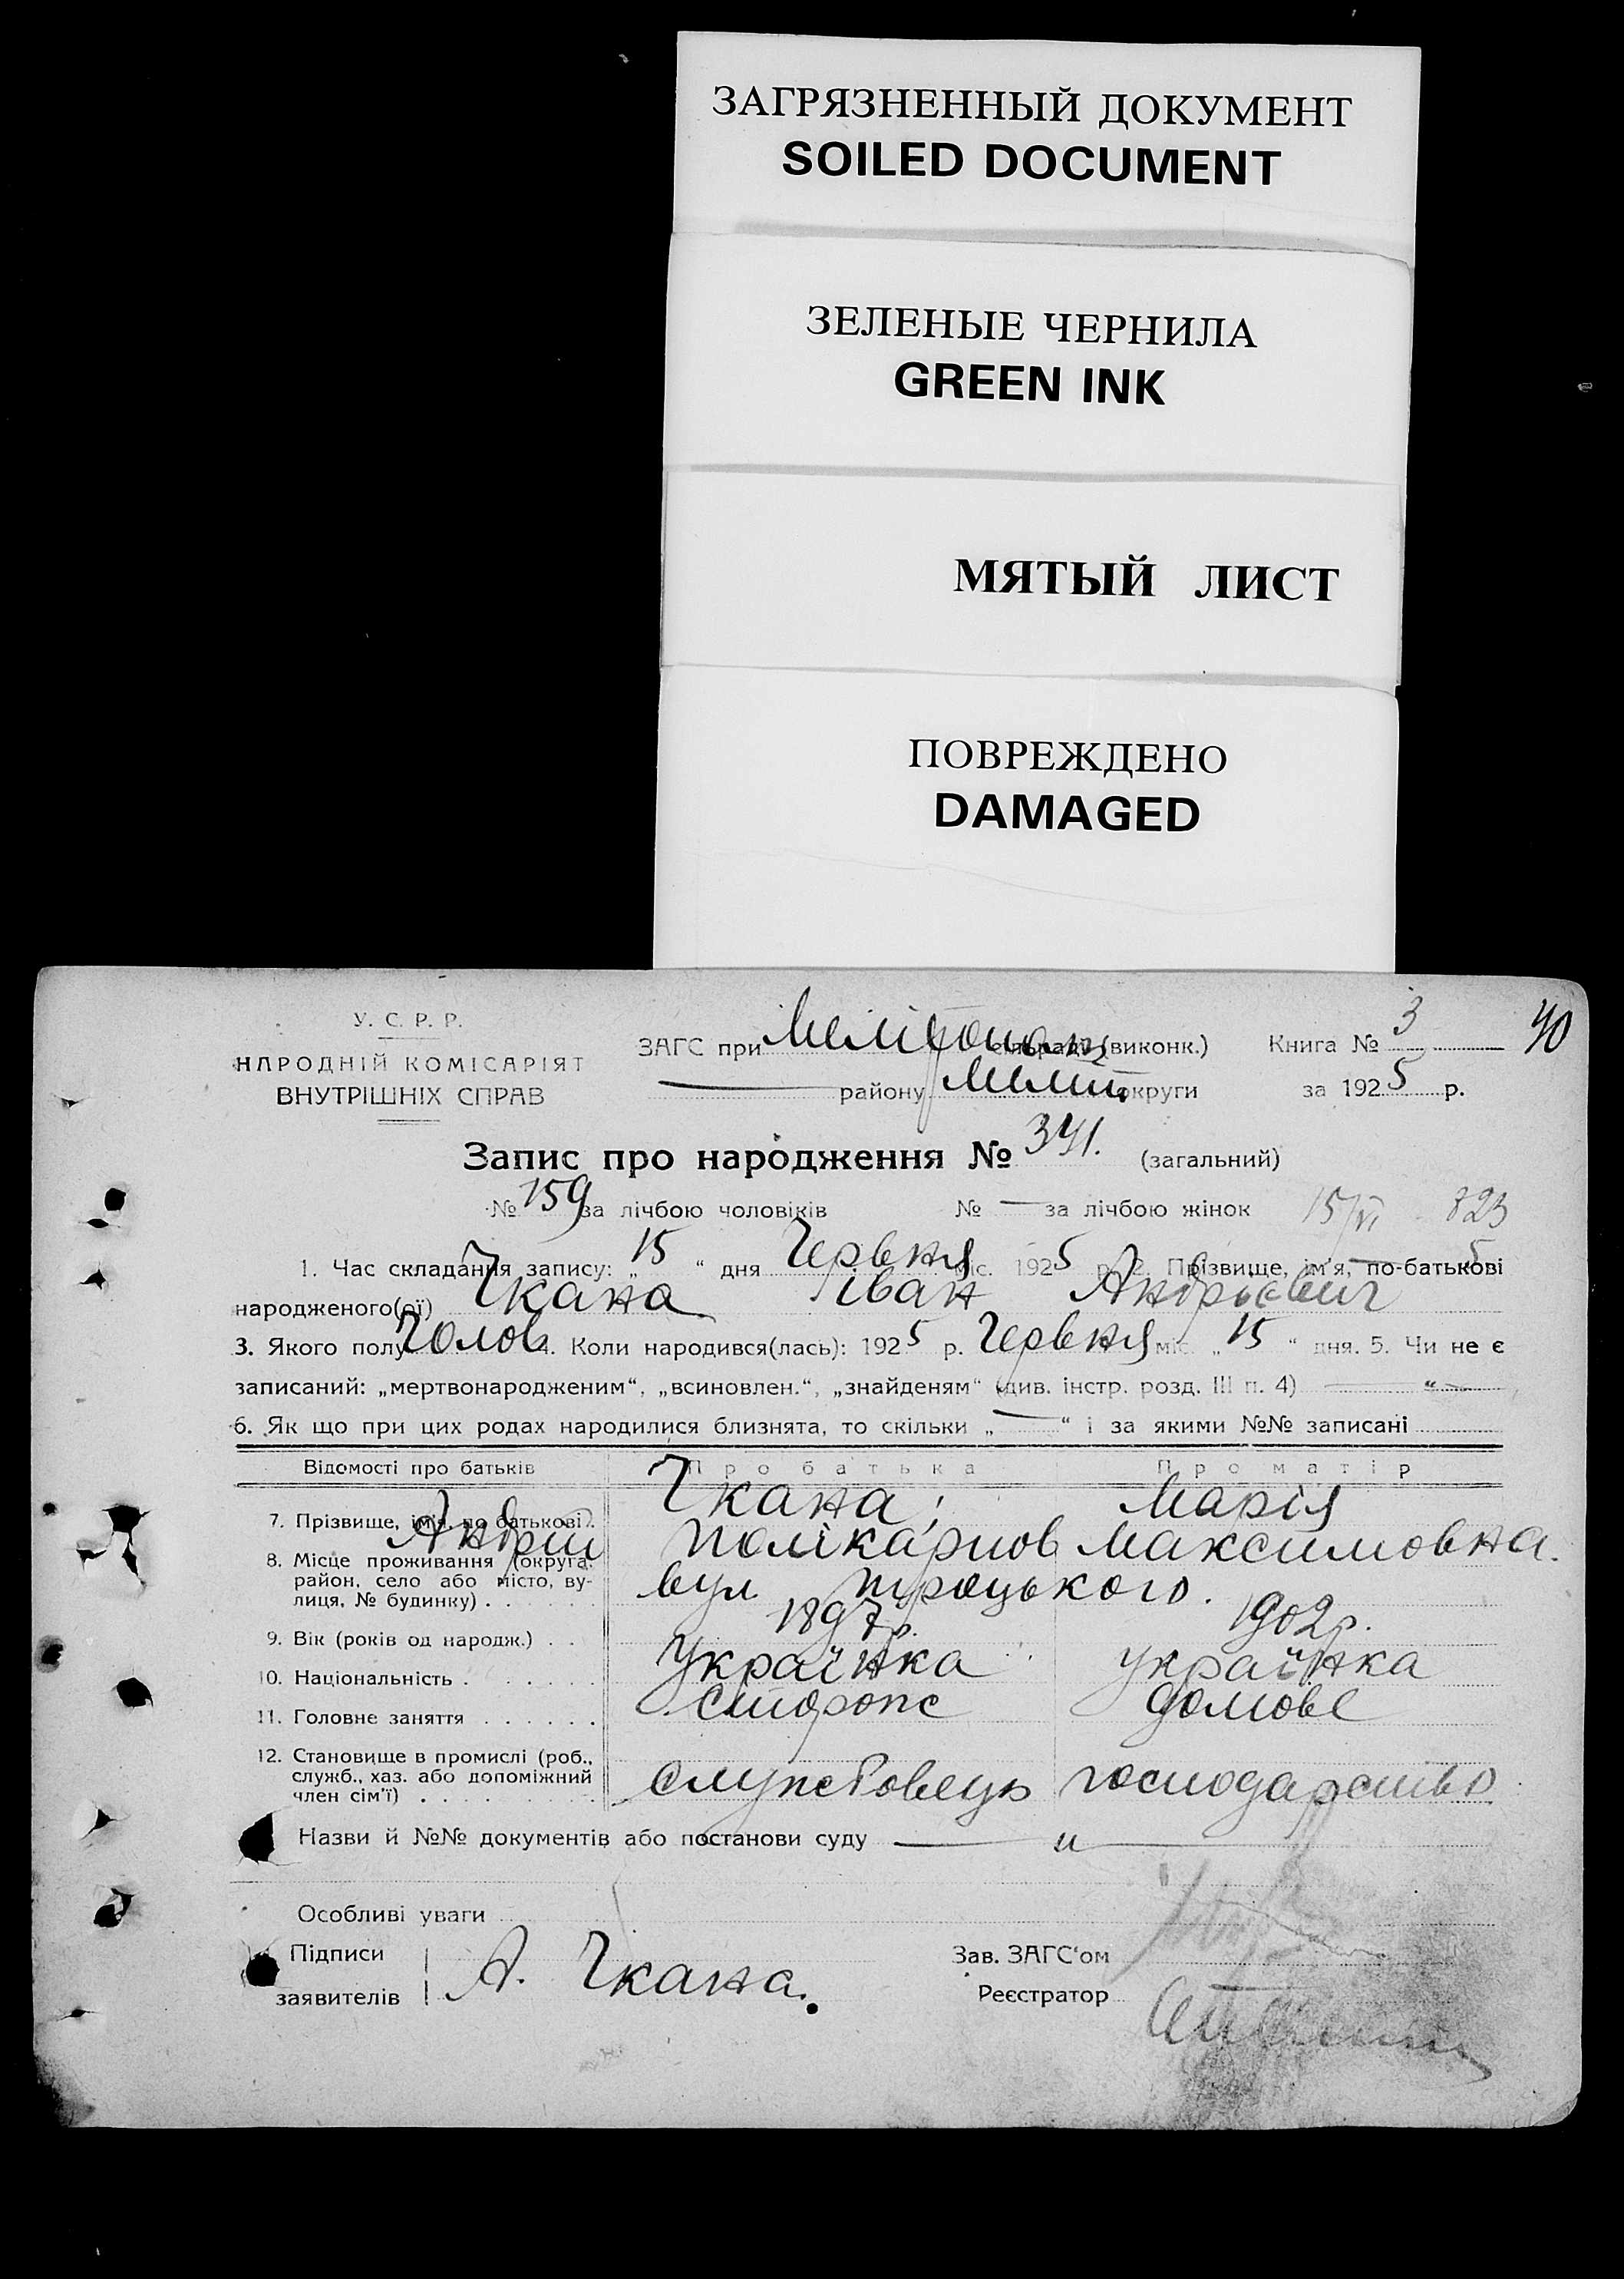 ЗАГРЯЗНЕННЫЙ ДОКУМЕНТ
SOILED DOCUMENT
ЗЕЛЕНЫЕ ЧЕРНИЛА
GREEN INK
МЯТЫЙ ЛИСТ
ПОВРЕЖДЕНО
DAMAGED
У. С. Р. Р.
НАРОДНІЙ КОМІСАРІЯТ
ВНУТРІШНІХ СПРАВ
ЗАГС при Меліtopol сільраді (виконк.) Книга № 3 40
району Меліт округи за 1925 р.
Запис про народження № 341. (загальний)
№ 159 за лічбою чоловіків № — за лічбою жінок 15/VI 823
5
1. Час складання запису: „ 15 “ дня Червня міс. 1925 р. 2. Прізвище, ім'я, по-батькові
народженого(ої) Чкана Іван Андрієвич
3. Якого полу Чолов 4. Коли народився(лась): 1925 р. Червня міс. „ 15 “ дня. 5. Чи не є
записаний: „мертвонародженим“, „всиновлен.“, „знайденям“ (див. інстр. розд. III п. 4) — “ —
6. Як що при цих родах народилися близнята, то скільки „ — “ і за якими №№ записані
Відомості про батьків Про батька Про матір
7. Прізвище, ім'я, по батькові . Чкана, Марія
Андрій Полікарпов Максимовна.
8. Місце проживання (округа, район, село або місто, ву-
лиця, № будинку) . . . . . . вул Троцького.
9. Вік (років од народж.) . . 1897 р. 1902 р.
10. Національність . . . . . . Українка українка
11. Головне заняття . . . . . . сторож домове
12. Становище в промислі (роб.,
служб., хаз. або допоміжний
член сім'ї) . . . . . . службовець господарство
Назви й №№ документів або постанови суду — „ —
Особливі уваги
Підписи
заявителів А. Чкана.
Зав. ЗАГС'ом
Реєстратор